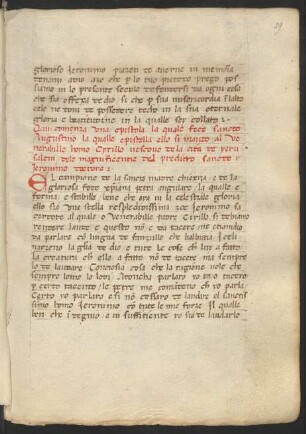 29
glorioso Jeronimo piazati de averne in memoria
tenani adio azo che per lo tuo pietoso prego pos
siamo in lo presente seculo defenderse da ogni cosa
che sia offesa de dio si che per sua misericordia siamo
cele ne tem te possedere techo in la sua eternale
gloria e beatitudine in la quale ser collato :
Qui comenza una epistola la quale fece sancto
Augustino la quale epistola ello si mando al ve
nerabille homo Cirillo vescovo de la cità de Jeru
salem dele magnificentie del predicto sancto
Jeronimo doctore :
El campione de la sancta madre chiesia : de la
gloriosa fede christiana petra angulare la quale e
ferma e stabille bene che am in la celestiale gloria
ello sia una stella resplendidissima zoe Jeronimo sa
cerdote al quale o Venerabille padre Cirillo si debiano
rendere laude e questo non e da tacere ne etiamdio
da parlare cum lingua de fanzulle che balbuta Iceli
narano la gloria de dio e tute le cose che lui a fatto
la creatura che ello a fatto no de tacere ma sempre
lo de laudare Conzosia cosa che la ragione vole che
sempre loma lo loro Adoncha parlaro io o tacero
per certo tacendo le petre me comandeno che io parla
Certo io parlaro e si no cessaro de laudare el sanctis
simo homo Jeronimo cum tute le mie forze Il quale
ben che indegnio e in sufficiente io sia de laudarlo